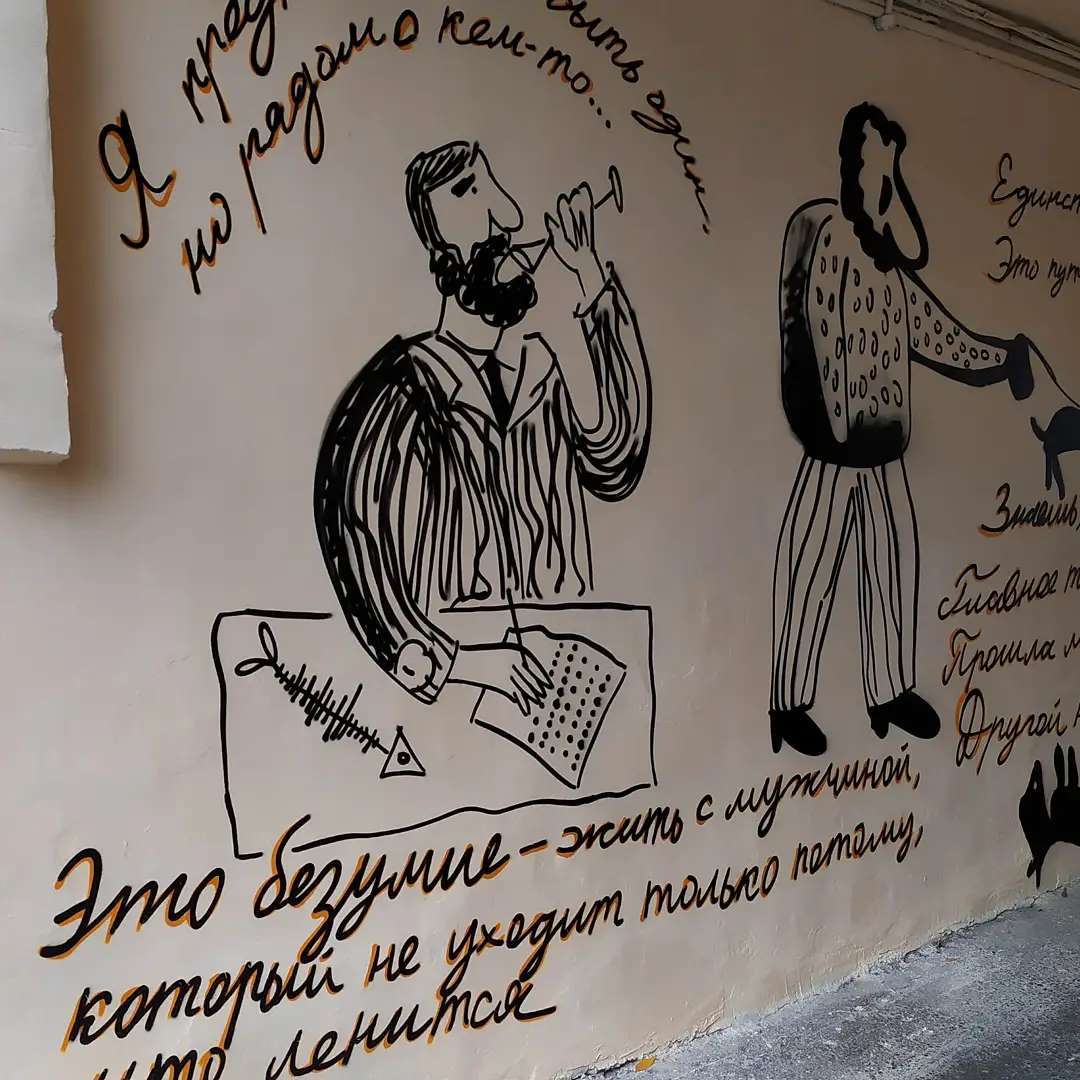 Я пред быть один,
но рядом с кем-то...
Единст
Это пут
Знаешь,
Главное т
Прошла м
Другой
Это безумие - жить с мужчиной,
который не уходит только потому,
что ленится